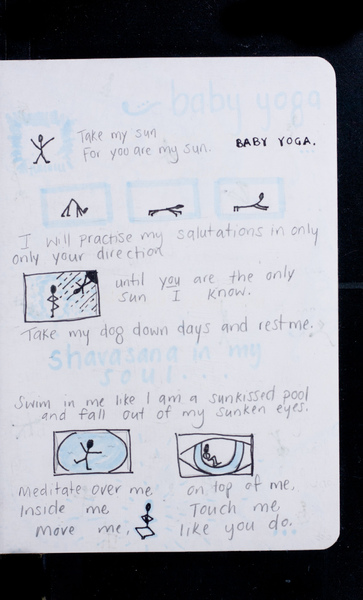 baby yoga
Take my sun
For you are my sun.
BABY YOGA.
I will practise my salutations in only
only your direction
until you are the only
sun I know.
Take my dog down days and rest me.
Shavasana in my
soul....
Swim in me like I am a sunkissed pool
and fall out of my sunken eyes.
Meditate over me
Inside me
Move me,
on top of me,
Touch me
like you do.